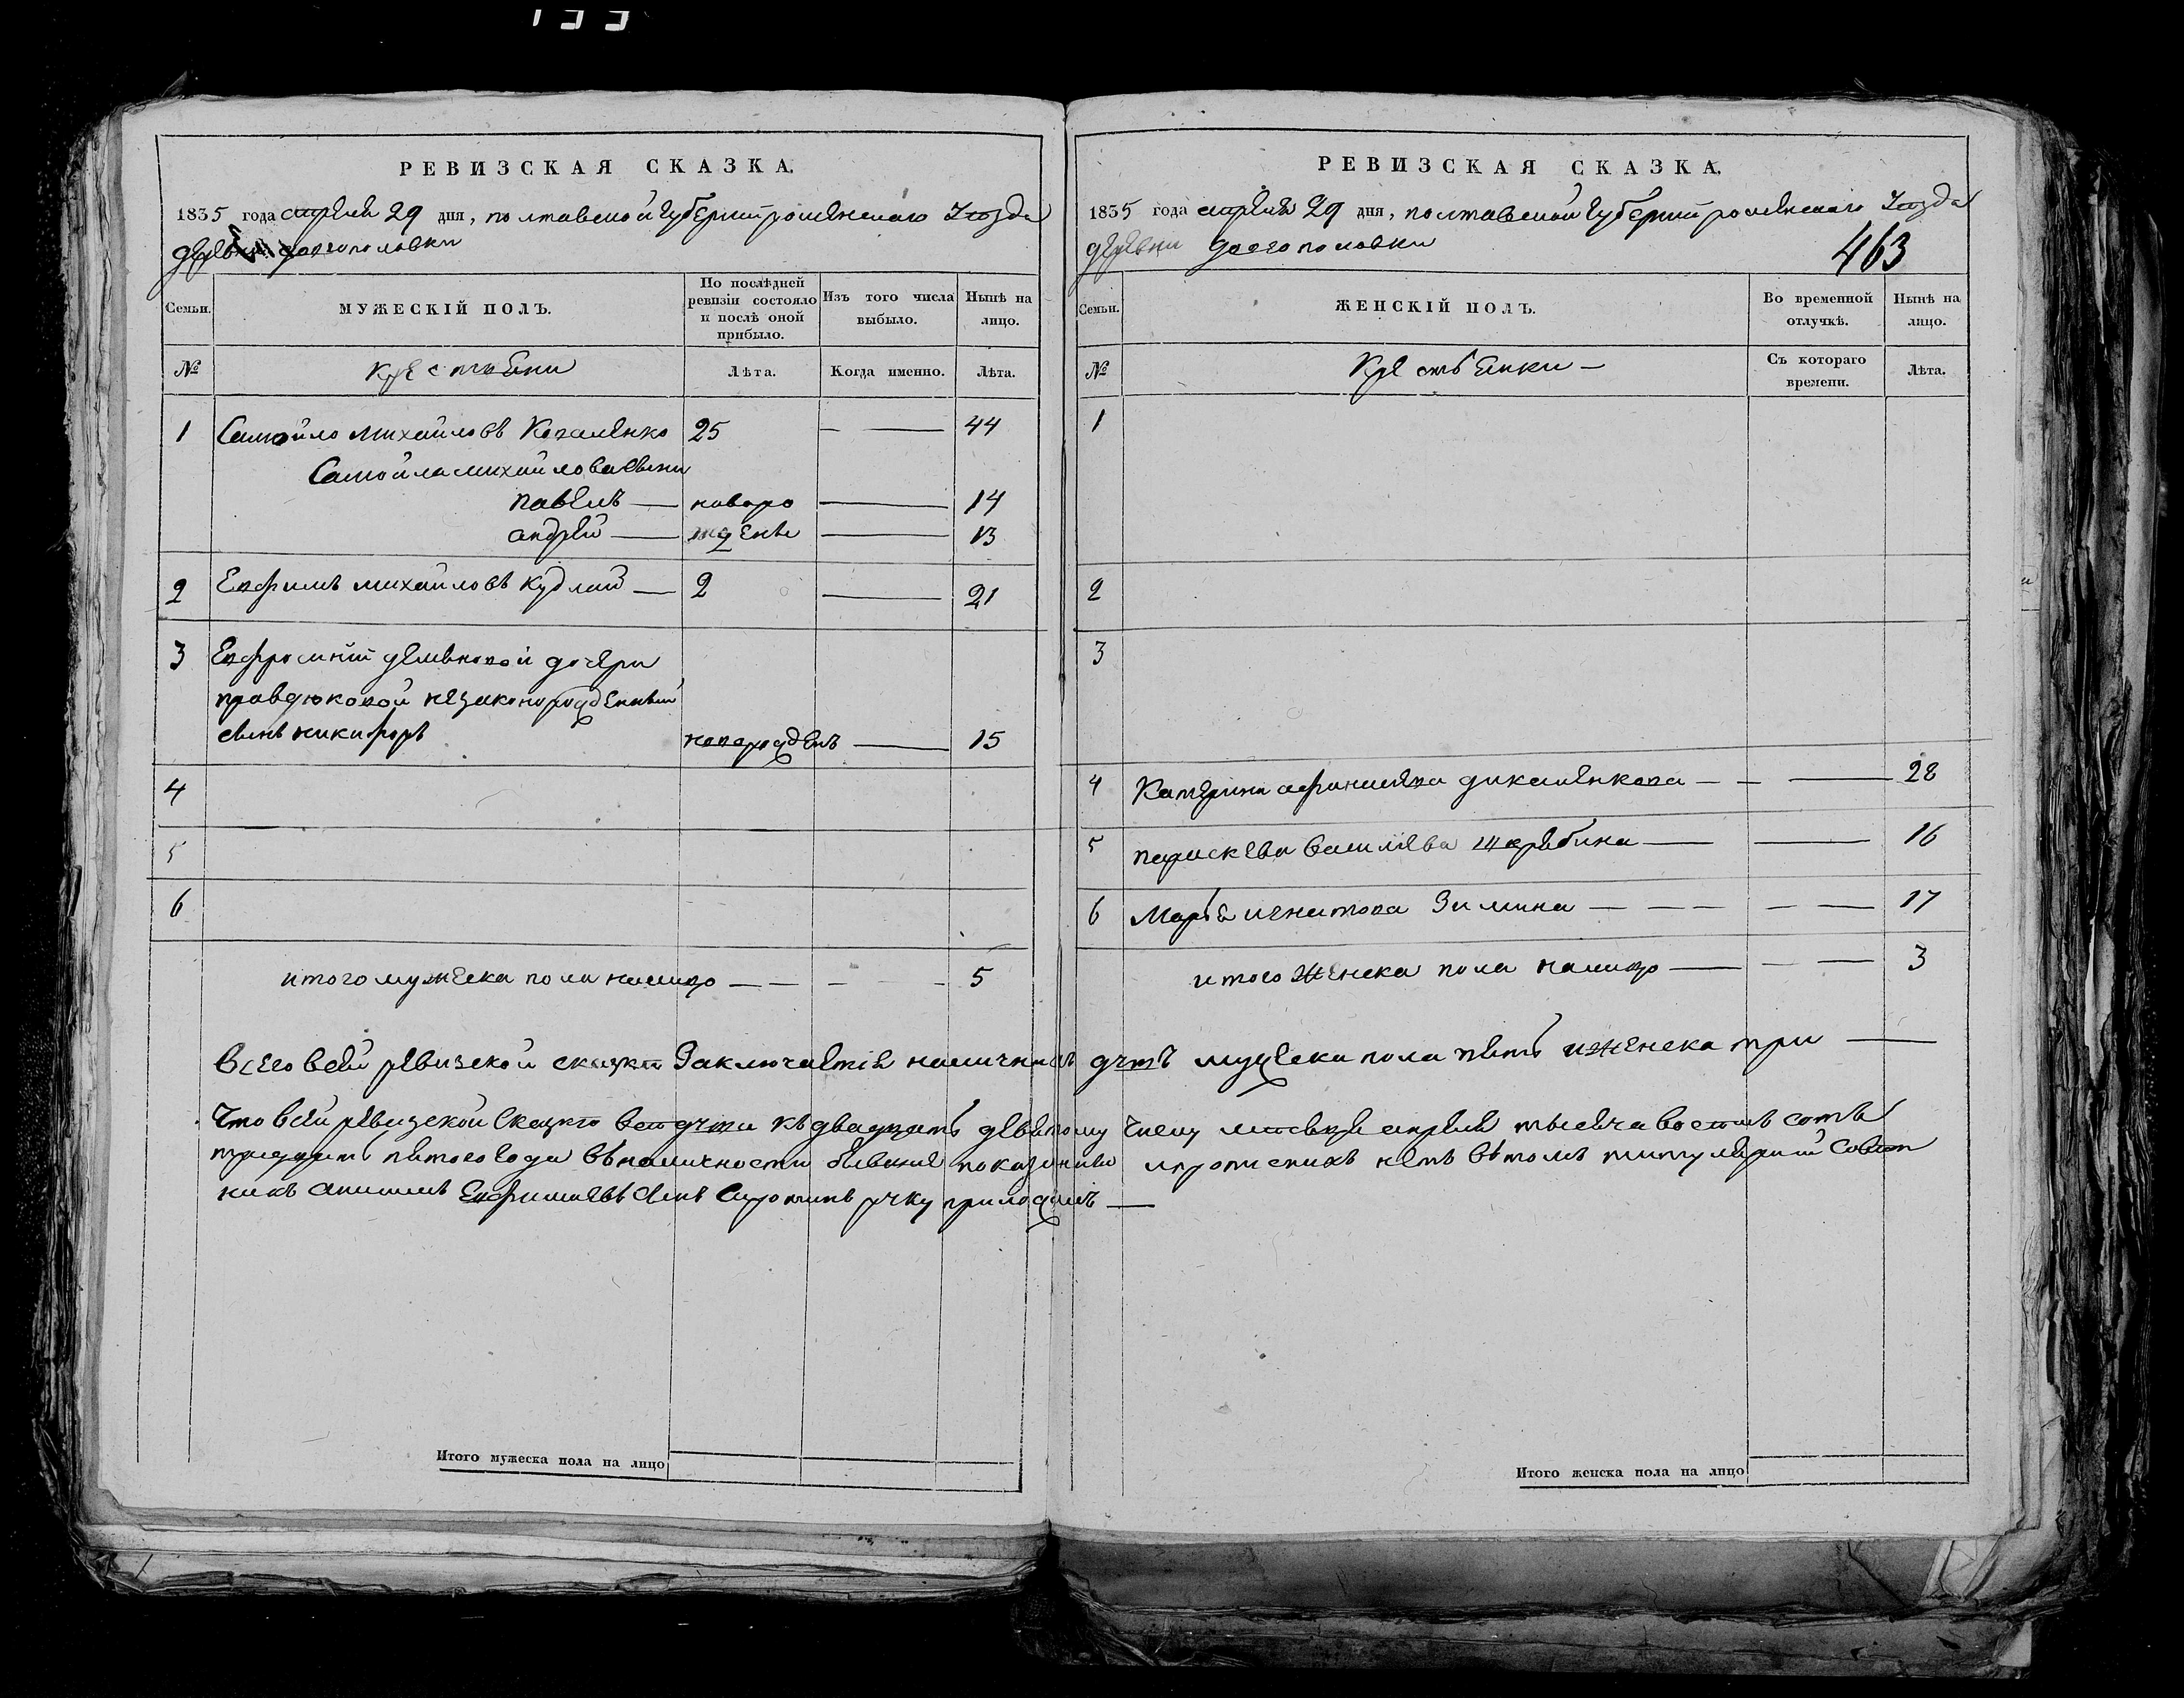 133
РЕВИЗСКАЯ СКАЗКА.
1835 года апреля 29 дня, полтавской губернии роменского Уезда
деревни долгополовки
Семьи.
МУЖЕСКІЙ ПОЛЪ.
По послѣдней ревизіи состояло и послѣ оной прибыло.
Изъ того числа выбыло.
Нынѣ на лицо.
№
крестьяни
Лѣта.
Когда именно.
Лѣта.
1 Самойло михайловъ Коваленко 25 — — 44
Самойла михайлова сыни
павелъ — новоро — 14
андрей — ждены — 13
2 Евфимъ михайловъ Кудлай — 2 — 21
3 Евфросиніи демяновой дочери
правдюковой незаконорожденный
сынъ никифоръ новорожденъ — 15
4
5
6
итого мужеска пола налицо — — — — 5
РЕВИЗСКАЯ СКАЗКА.
1835 года апреля 29 дня, полтавской губернии роменского Уезда
деревни долгополовки
463
Семьи.
ЖЕНСКІЙ ПОЛЪ.
Во временной отлучкѣ.
Нынѣ на лицо.
№
Крестьянки —
Съ котораго времени.
Лѣта.
1
2
3
4 Катерина афанасиева — — — 28
5 параскева василиева — — 16
6 Марья игнатова Зимина — — — — — 17
итого женска пола налицо — — — 3
всего всей ревизской скаске Заключается наличныхъ душъ мужеска пола пять иженска три —
Что всей ревизской Скаске все души къ двадцать девятому числу месяця апреля тысяча восемъ сотъ
тридцать пятого года въ наличности бывшие показанны ипрописныхъ нетъ въ томъ титулярний Совет
никъ Евфимиевъ сынъ руку приложилъ —
Итого мужеска пола на лицо
Итого женска пола на лицо